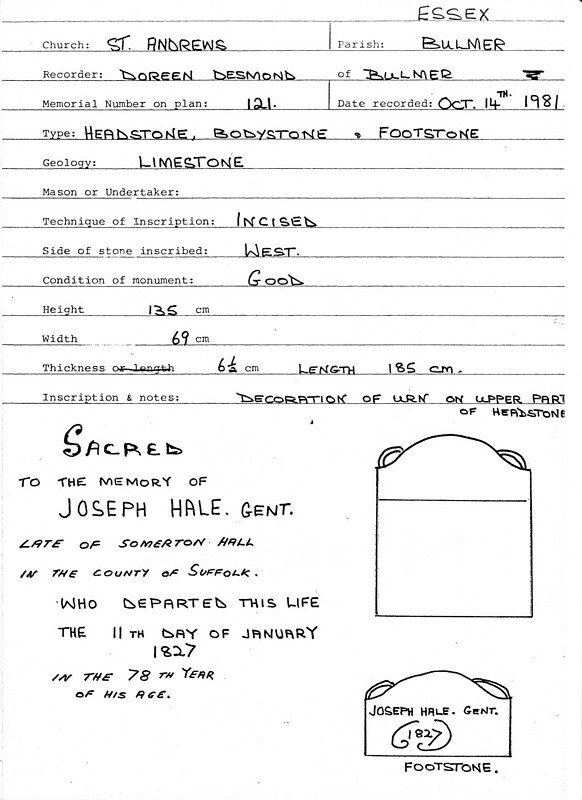 ESSEX
Church: ST. ANDREWS Parish: BULMER
Recorder: DOREEN DESMOND of BULMER
Memorial Number on plan: 121. Date recorded: OCT. 14TH. 1981
Type: HEADSTONE, BODYSTONE & FOOTSTONE
Geology: LIMESTONE
Mason or Undertaker:
Technique of Inscription: INCISED
Side of stone inscribed: WEST.
Condition of monument: GOOD
Height 135 cm
Width 69 cm
Thickness or length 6½ cm LENGTH 185 cm.
Inscription & notes: DECORATION OF URN ON UPPER PART
OF HEADSTONE
SACRED
TO THE MEMORY OF
JOSEPH HALE. GENT.
LATE OF SOMERTON HALL
IN THE COUNTY OF SUFFOLK.
WHO DEPARTED THIS LIFE
THE 11TH DAY OF JANUARY
1827
IN THE 78TH YEAR
OF HIS AGE.
JOSEPH HALE. GENT.
1827
FOOTSTONE.